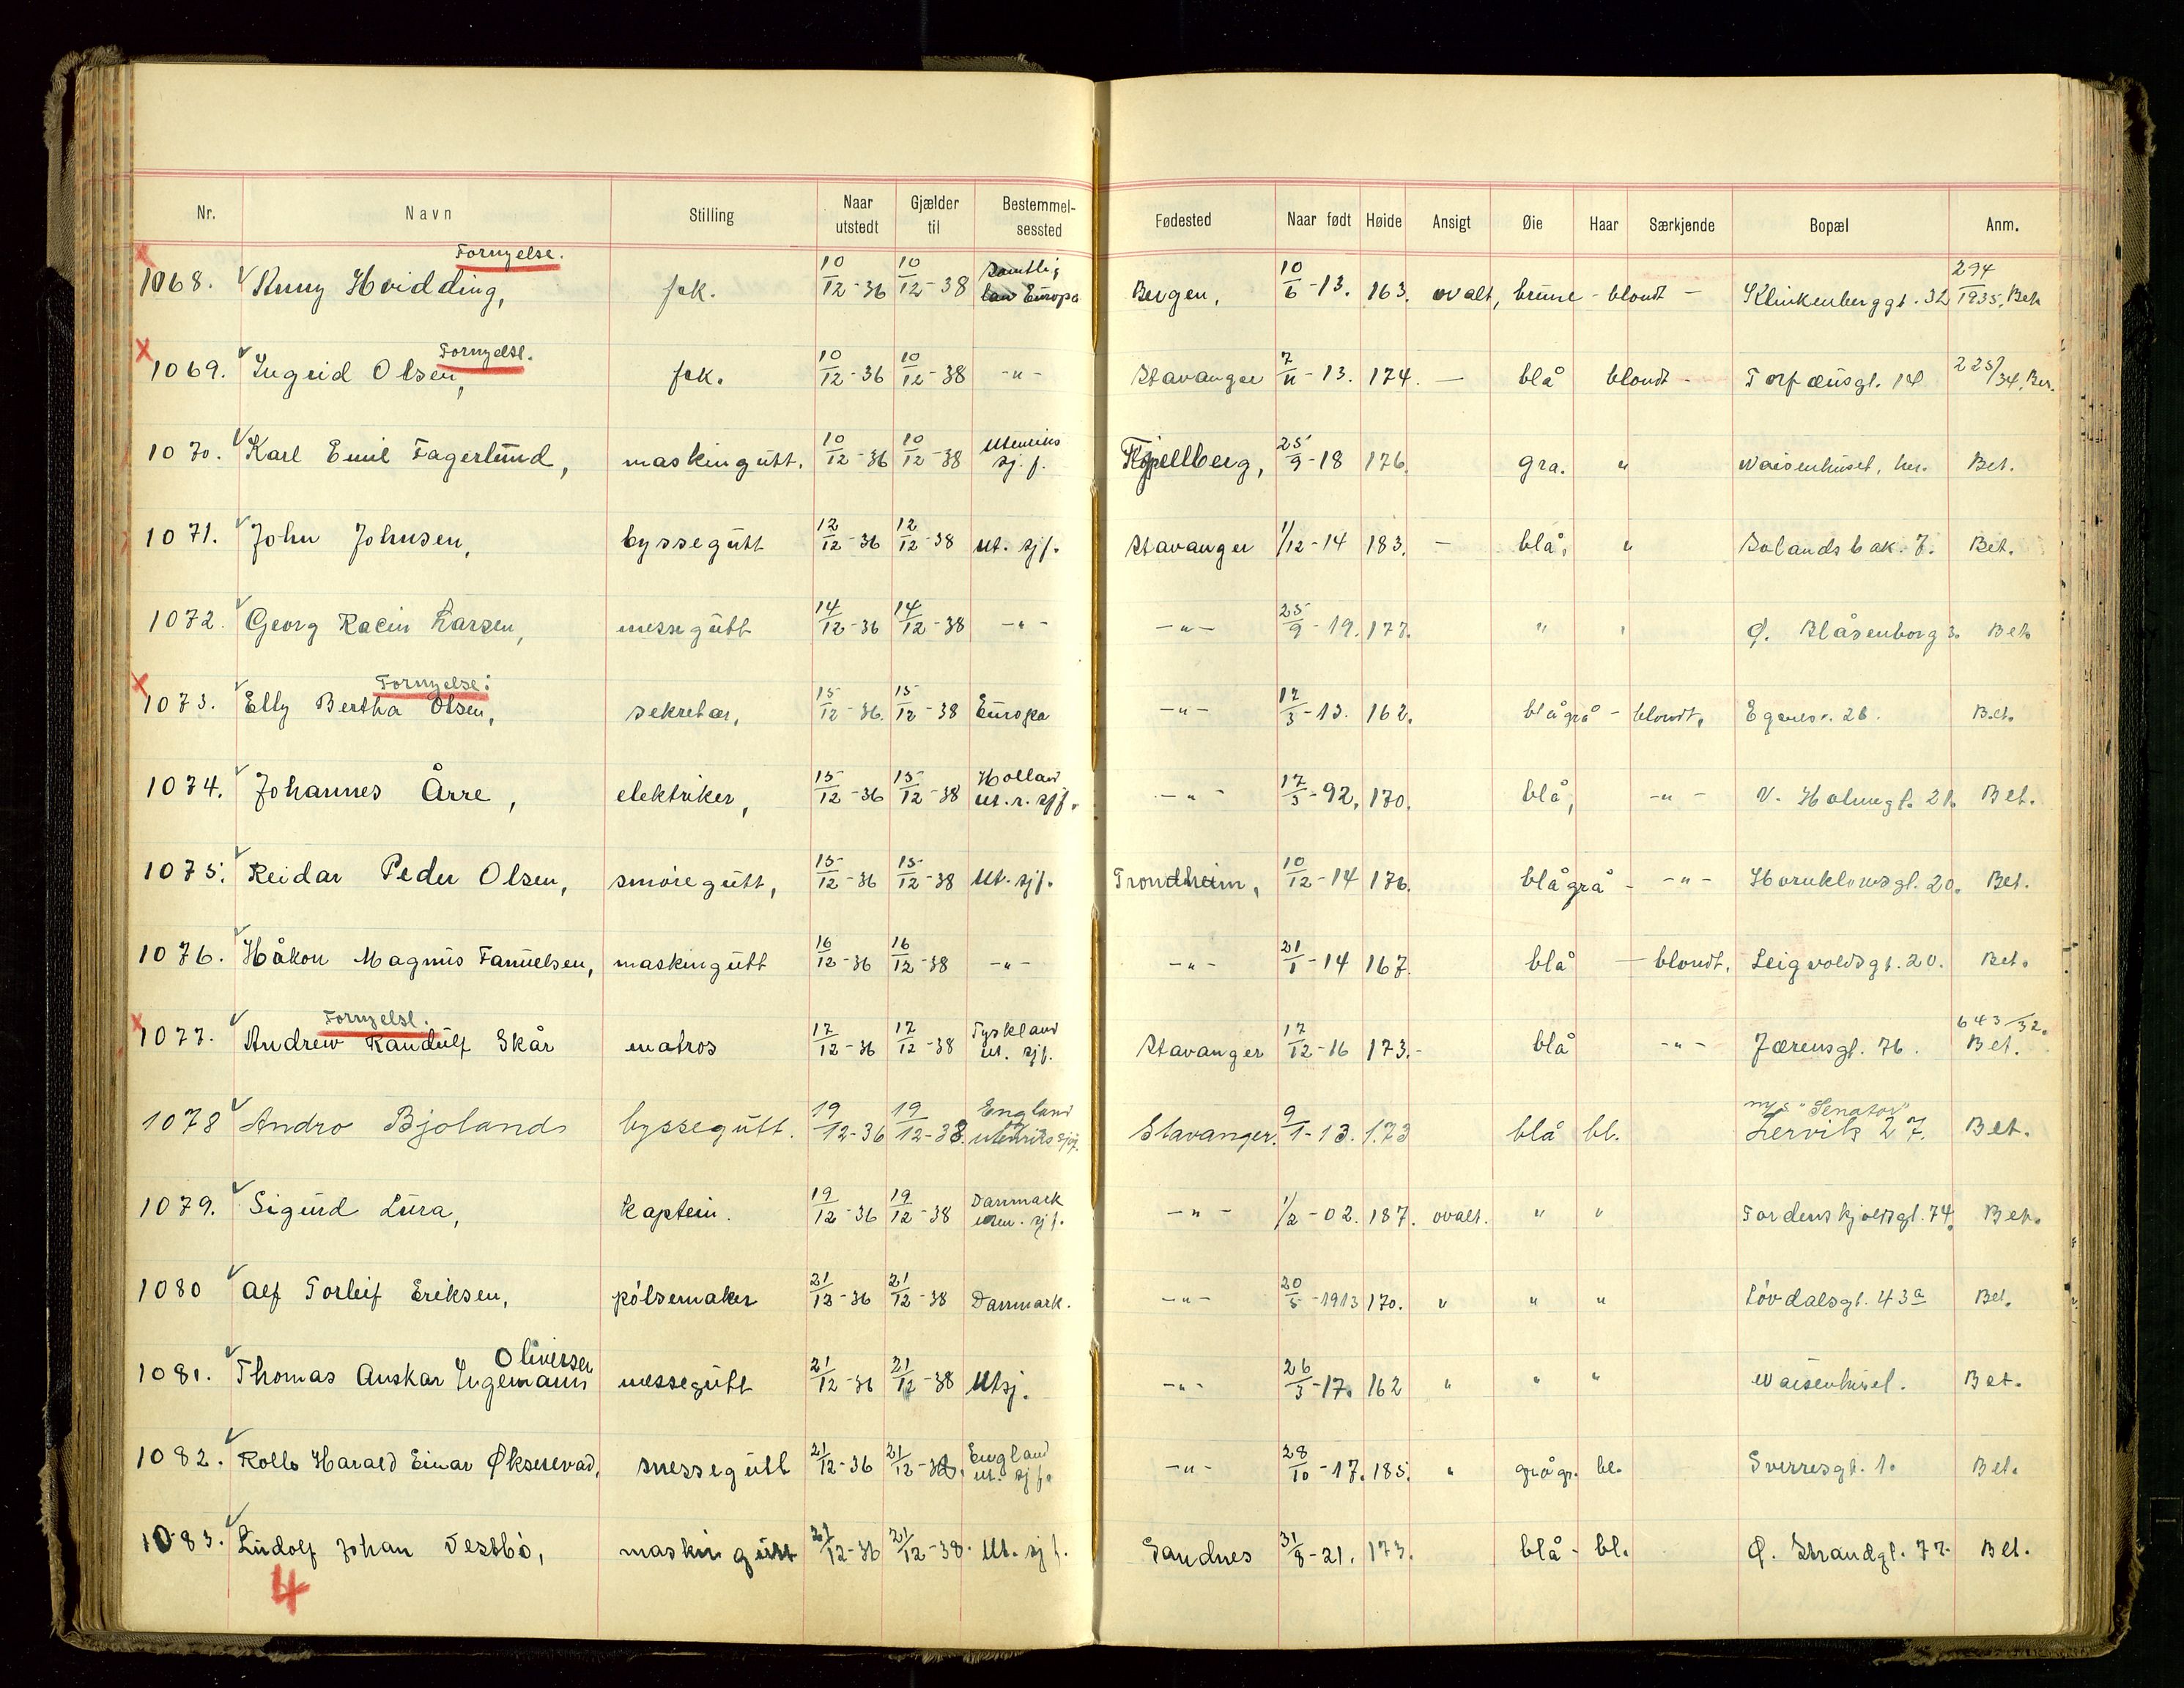 Nr. Navn Stilling Naar utstedt Gjælder til Bestemmelsessted Fødested Naar født Høide Ansigt Øie Haar Særkjende Bopæl Anm.
Fornyelse.
1068. Hvidding, frk. 10/12-36 10/12-38 Samtlig land Europa Bergen, 10/6-13. 163. ovalt, brune - blondt - Klinkenberggt. 32 294/1935, Bet.
Fornyelse.
1069. Ingrid Olsen, frk. 10/12-36 10/12-38 -"- Stavanger 7/11-13. 174. — blå blondt - Torfæusgt. 14 225/34, Bet.
1070. Karl Emil Fagerlund, maskingutt. 10/12-36 10/12-38 Utenriks sj.f. 25/9-18 176. grå. " Waisenhuset, her. Bet.
1071. John Johnsen, byssegutt 12/12-36 12/12-38 Ut. sjf. Stavanger 1/12-14 183. - blå, " Solandsbak. 7. Bet.
1072. Georg Larsen, messegutt 14/12-36 14/12-38 -"- -"- 25/9-19. 177. " " Ø. Blåsenborg 3. Bet.
Fornyelse:
1073. Elly Bertha Olsen, sekretær, 15/12-36. 15/12-38 Europa -"- 17/3-13. 162. blågrå - blondt, Eganesv. 26. Bet.
1074. Johannes Årre, elektriker, 15/12-36 15/12-38 Holland ut.r. sjf. -"- 17/3-92, 170. blå, -"- V. Holmegt. 21. Bet.
1075. Reidar Peder Olsen, smøregutt, 15/12-36 15/12-38 Ut. sjf. Trondheim, 10/12-14 176. blågrå - -"- Hornklovesgt. 20. Bet.
1076. Håkon Magnus Samuelsen, maskingutt 16/12-36 16/12-38 -"- -"- 21/1-14 167. blå - blondt, 20. Bet.
Fornyelse.
1077. Andrew Randulf Skår matros 17/12-36 17/12-38 Tyskland ut. sjf. Stavanger 17/12-16 173.- blå -"- Jærensgt. 76. 643/32. Bet.
1078 Andro Bjolands byssegutt. 19/12-36 19/12-38. England utenriks sjf. Stavanger. 9/1-13. 1.73 blå bl. m/s "Senator" Lervik 27. Bet.
1079. Sigurd Lura, kaptein. 19/12-36 19/12-38 Danmark uten. sjf. -"- 1/2-02. 187. ovalt. " " Tordenskjoldsgt. 74. Bet.
1080 Alf Torleif Eriksen, pølsemaker 21/12-36 21/12-38 Danmark. -"- 20/5-1913 170. " " " Løvdalsgt. 43a Bet.
1081. Thomas Anskar Ingemann Oliversen messegutt 21/12-36 21/12-38 Utsj. -"- 26/3-17. 162 " " " Waisenhuset. Bet.
1082. Rolls Harald Einar Øksnevad, messegutt 21/12-36 21/12-38. England ut. sjf. -"- 28/10-17. 185. " grågr. bl. Sverresgt. 1. Bet.
1083. Ludolf Johan Vestbø, maskingutt 21/12-36 21/12-38. Ut. sjf. Sandnes 31/8-21. 173. blå - bl. Ø. Strandgt. 77. Bet.
4